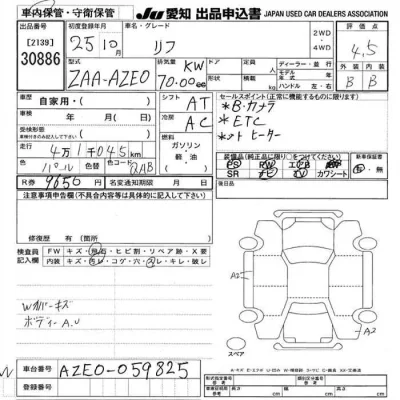 車内保管・守衛保管
JU 愛知 出品申込書 JAPAN USED CAR DEALERS ASSOCIATION
出品番号 初度登録年月 車名・グレード 2WD 評価点
[2139] 25 10月 リーフ 4WD 4.5
30886 型式 排気量 KW ドア 人員 ディーラー・並行 外装 内装
ZAA-AZE0 70.00cc モデル年式 年 ハンドル 左・右 B B
車歴 自家用・( ) シフト AT セールスポイント(正常に機能するもののみ記入)
車検 年 月( 日) 冷房 AC *B・カメラ
受検形態 *ETC
走行 4万1千045km 燃料 ガソリン・軽油 *シートヒーター
色 パール 色替 色コード QAB
R券 9650円 名変通知期限 月 日 SR カワシート
注意事項申告欄(不具合含めて具体的に記入して下さい) 後日品
修復歴 有(箇所 )
検査員記入欄 FW キズ・飛石・ヒビ割・リペア跡・X要
内装 キズ・汚レ・コゲ・穴・スレ・キレ・破レ
Wカバーキズ
ボディーA.U
A2
スペア
車台番号 AZE0-059825
登録番号